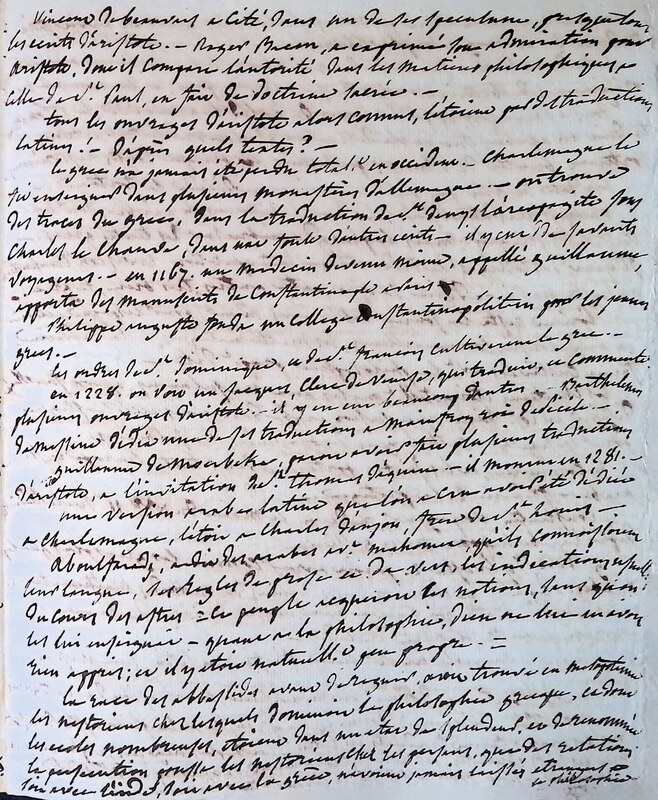 Vincent de beauvais a cité, dans un de ses speculum, presque tous
les écrits d'aristote. — Roger Bacon, a exprimé son admiration pour
aristote, dont il compare l'autorité dans les matieres philosophiques a
celle de st. Paul, en fait de doctrine sacrée. —
tous les ouvrages d'aristote alors connus, l'étoient par des traductions
latines. — D'après quels textes? —
le grec n'a jamais été perdu totalt. en occident. — Charlemagne le
fit enseigner dans plusieurs monastères d'allemagne. — on trouve
des traces du grec, dans la traduction de st. denys l'aréopagite sous
Charles le Chauve, dans une foule d'autres écrits — il y eut de savants
voyageurs. — en 1167. un médecin devenu moine, appellé guillaume,
apporta des manuscrits de Constantinople a paris —
Philippe auguste fonda un college Constantinopolitain pour les jeunes
grecs. —
les ordres de st. Dominique, et de st. françois cultiverent le grec. —
en 1228. on voit un jacques, clerc de venise, qui traduisit, et commenta
plusieurs ouvrages d'aristote — il y en eut beaucoup d'autres — Barthelemi
de messine dédie une de ses traductions a mainfroy roi de sicile —
guillaume de moerbeka, paroit avoir fait plusieurs traductions
d'aristote, a l'invitation de st. thomas d'aquin. — il mourut en 1281. —
une version arabe latine que l'on a cru avoir été dédiée
a charlemagne, l'étoit a Charles d'anjou frere de st. Louis —
Aboulfaradj, a dit des arabes avt. mahomet, qu'ils connoissoient
leur langue, les regles de prose et de vers, les indications
du cours des astres = le peuple acqueroit les notions, sans qu'on
les lui enseignat — quant a la philosophie, dieu ne leur en avoit
rien appris; et il y étoit naturellt. peu propre. =
la race des abbassides avant de regner, avoit trouvé en mesopotamie
les nestoriens chez lesquels dominoit la philosophie grecque, et dont
les écoles nombreuses, étoient dans un état de splendeur, et de renommée
la persecution poussa les nestoriens chez les persans, que des relations
soit avec l'inde, soit avec la grèce, n'avoient jamais laissés etrangers a
la philosophie